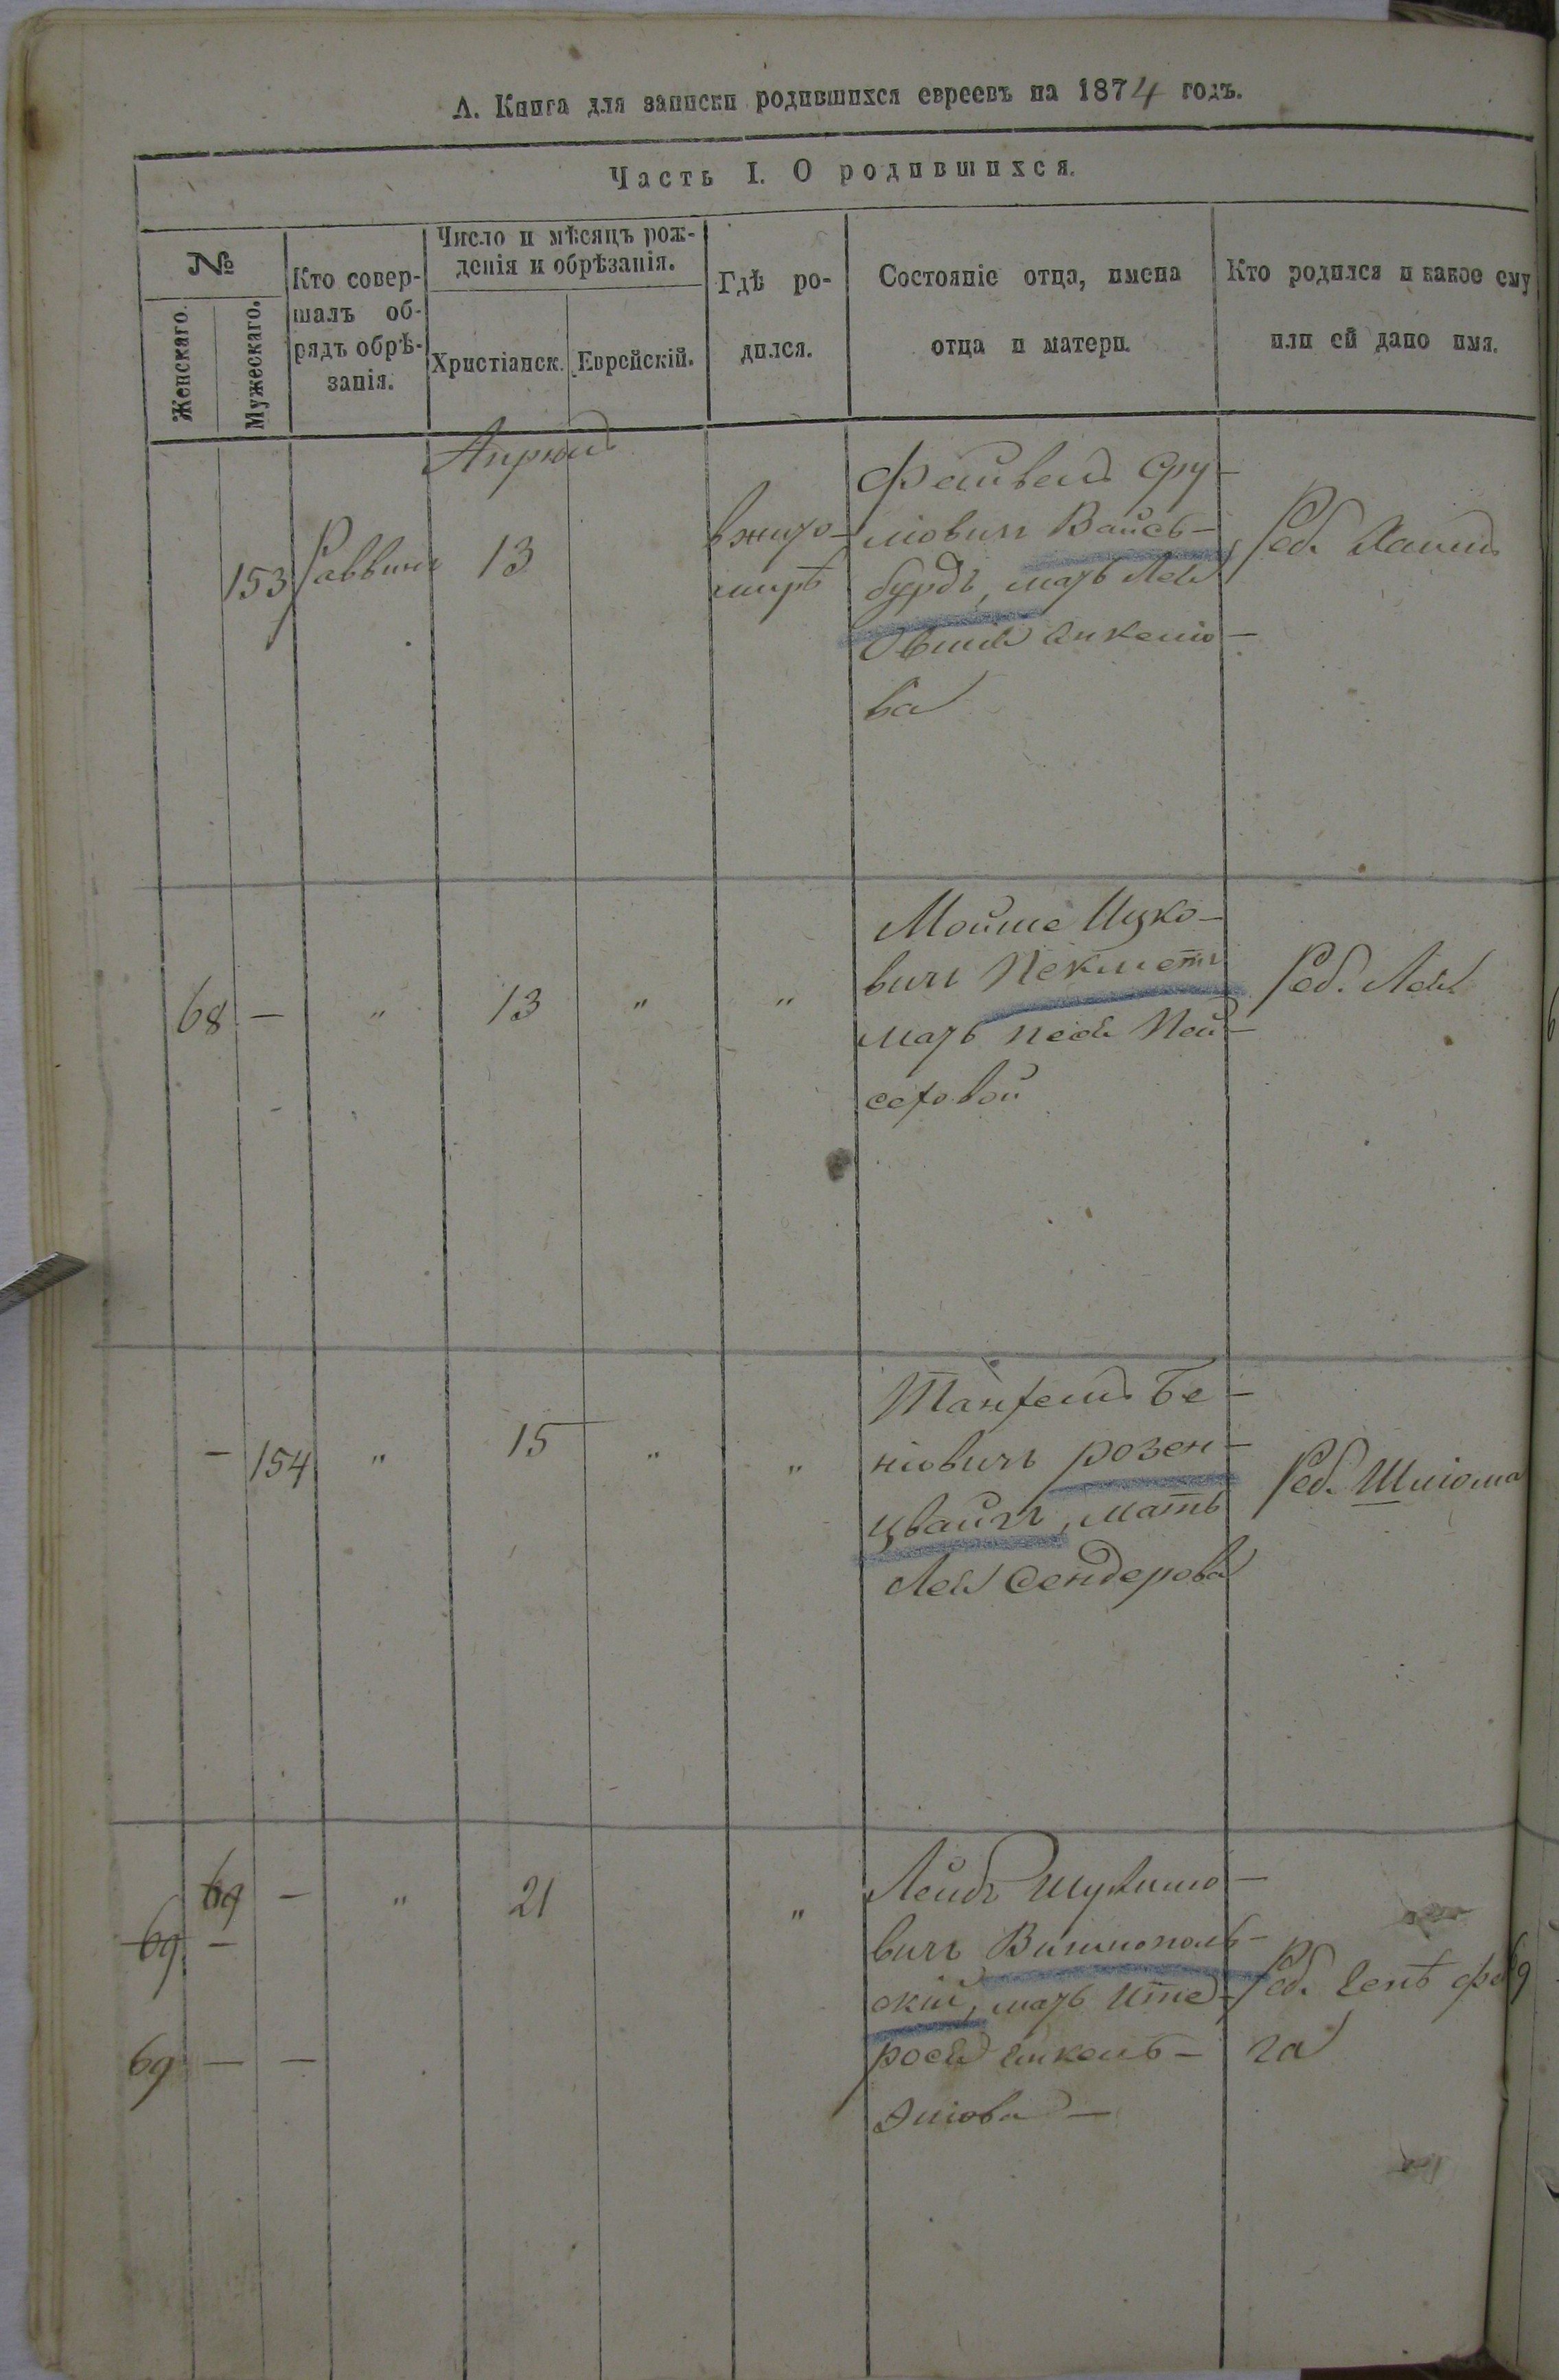 А. Книга для записки родившихся евреевъ на 1874 годъ.
Часть I. О родившихся.
№
Женскаго.
Мужескаго.
Кто совер-
шалъ об-
рядъ обрѣ-
занія.
Число и мѣсяцъ рож-
денія и обрѣзанія.
Христіанск.
Еврейскій.
Гдѣ ро-
дился.
Состояніе отца, имена
отца и матери.
Кто родился и какое ему
или ей дано имя.
Апрель
153
Раввинъ
13
в жито-
мирѣ
Файвель Сру-
ліовичъ Вайсъ-
бурдъ, мать Лея
ва
Реб.
68 — " 13 " "
Мойше Ицко-
вичъ Пекметъ
мать песя Пей-
сеховой
Реб. Лея
— 154 " 15 " "
Танхель Бе-
ніовичъ розен-
цвайгъ, мать
Лея Сендерова
Реб. Шліома
69 — " 21 "
69 —
69 — —
Лейбъ
вичъ
скій, мать Итте-
рося
Реб.
га